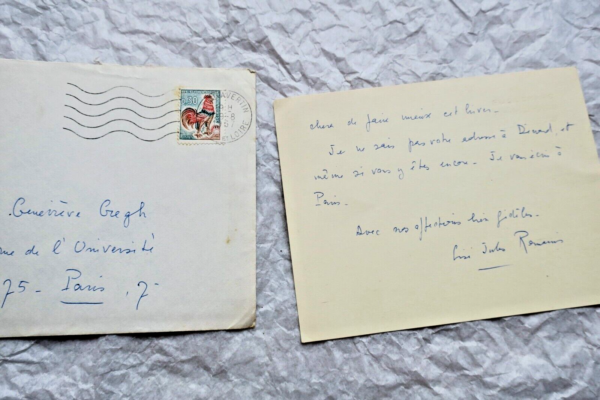 0,30
. Geneviève Gregh
ue de l'Université
75 - Paris . 7-
chose de faire mieux cet hiver.
Je ne sais pas votre adresse à Dinard, et
même si vous y êtes encore. Je vous écris à
Paris.
Avec nos affections bien fidèles.
Lise Jules Romains